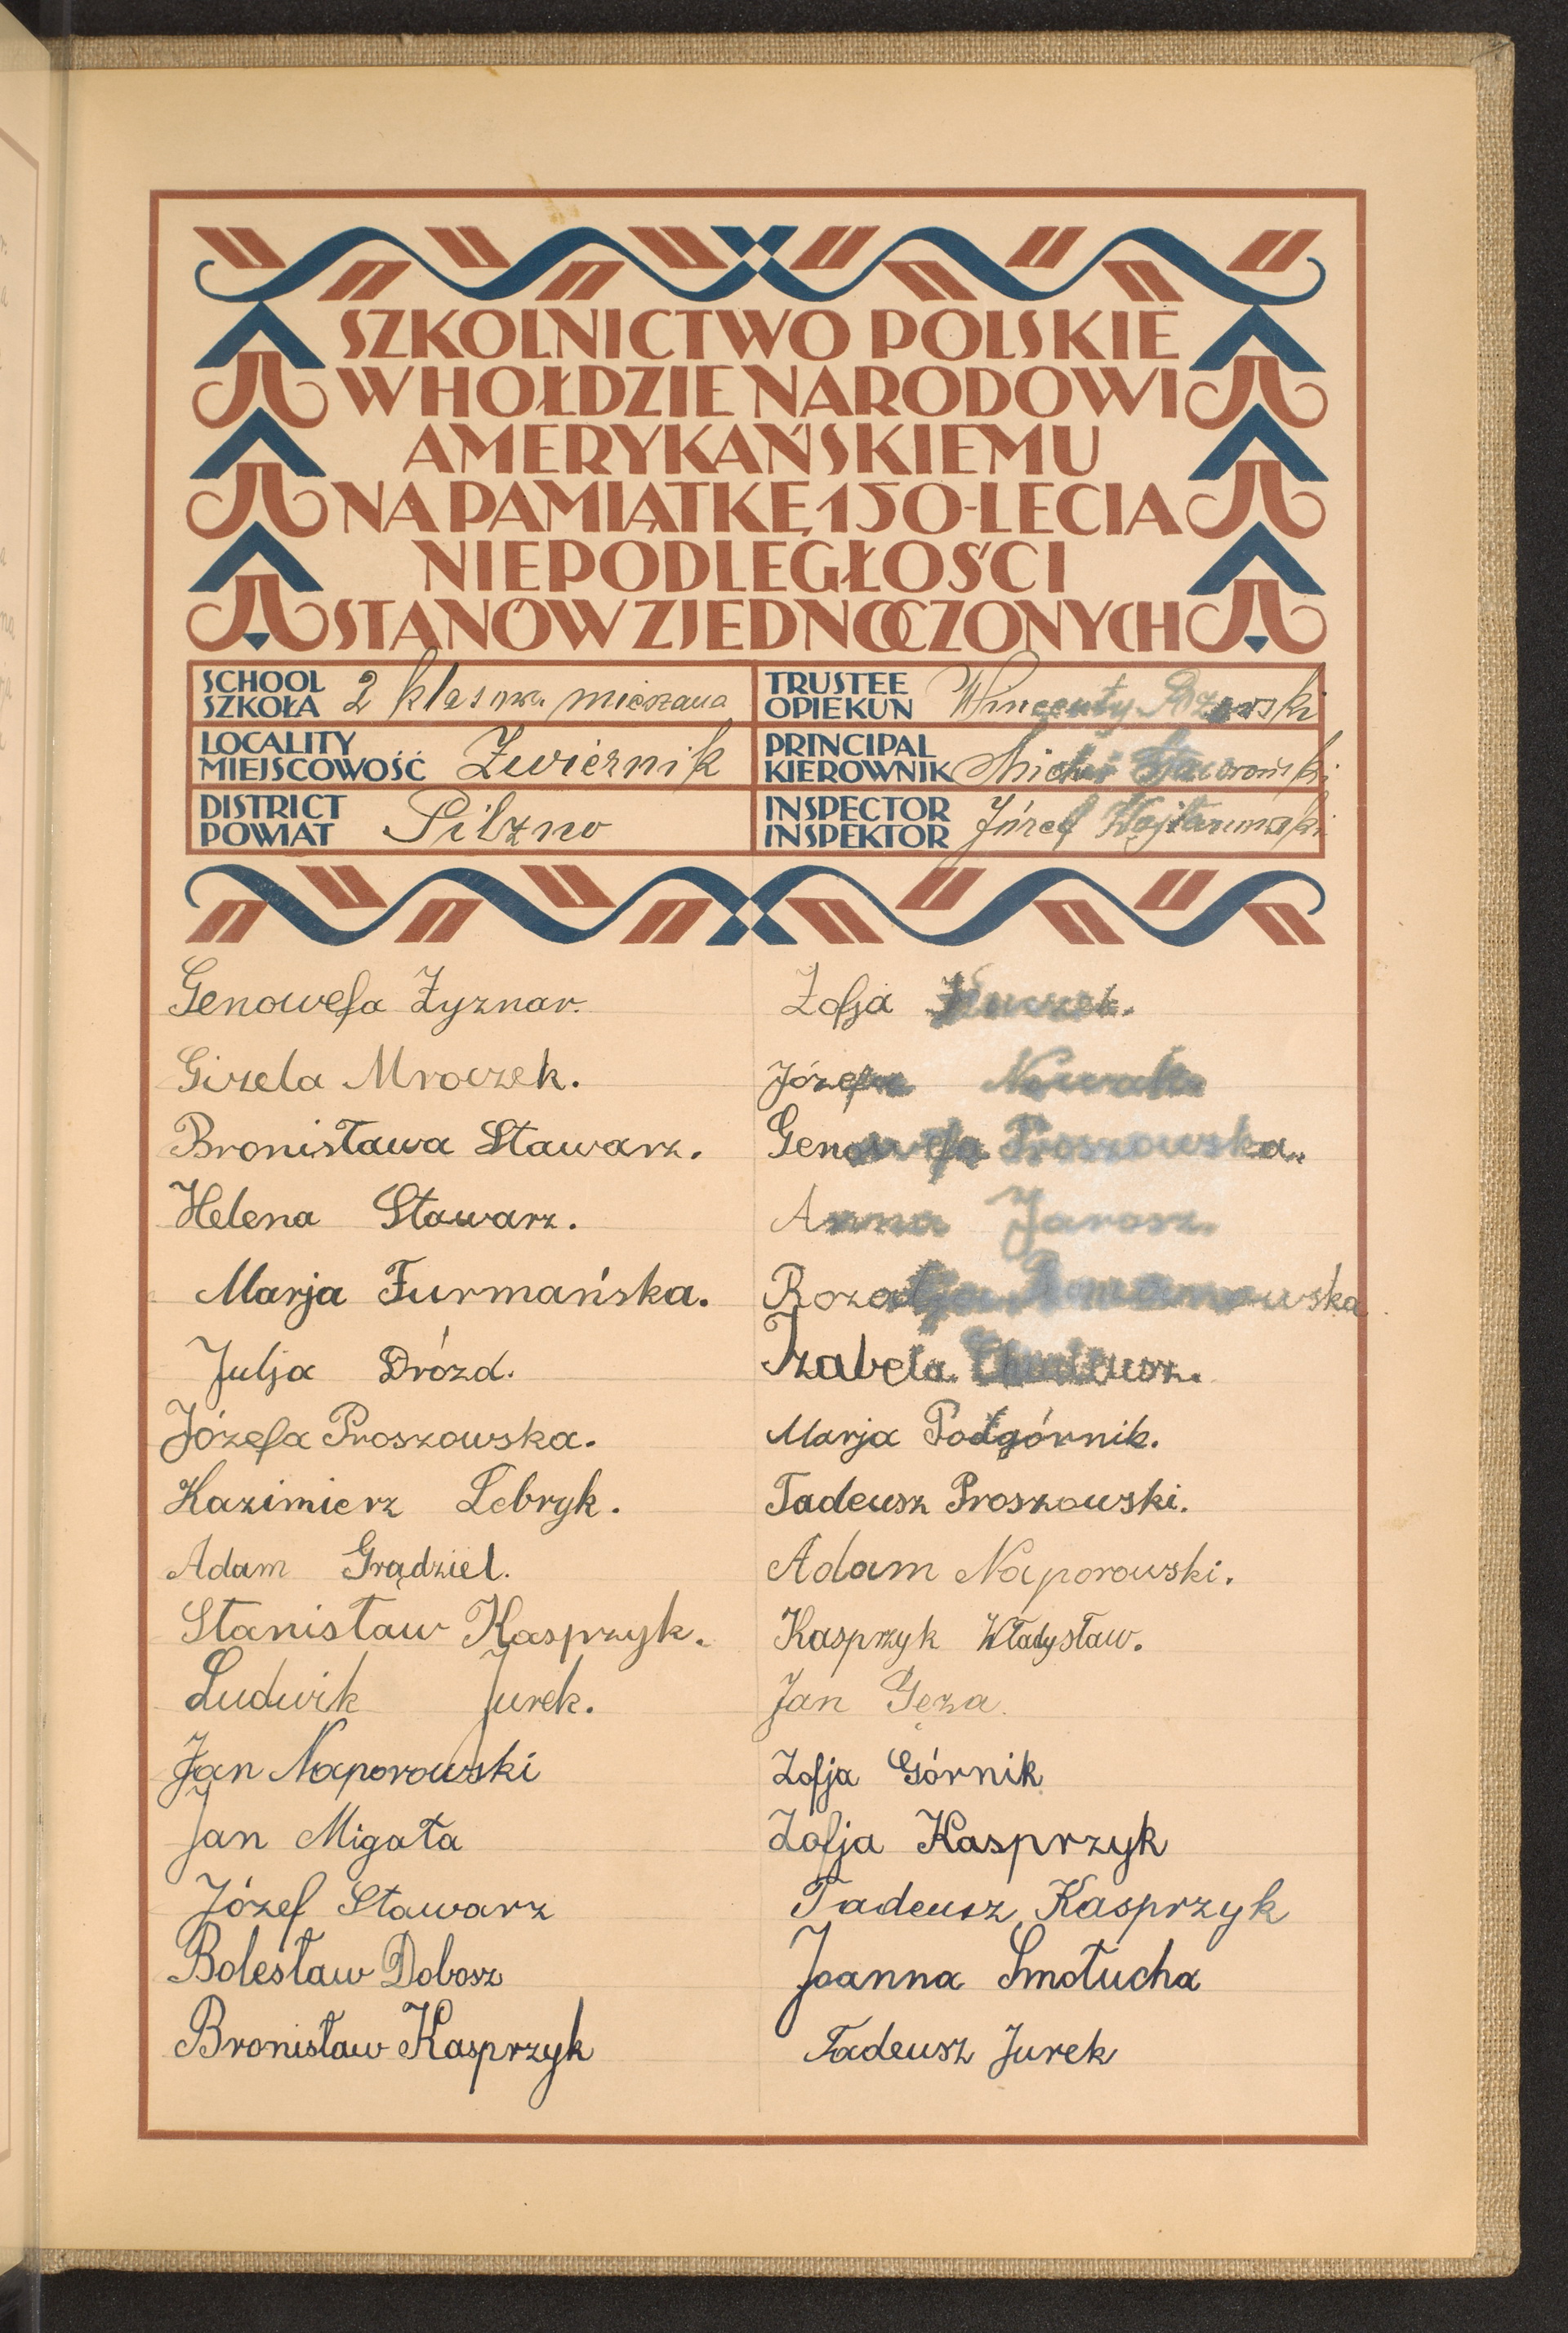 SZKOLNICTWO POLSKIE
W HOŁDZIE NARODOWI
AMERYKAŃSKIEMU
NA PAMIĄTKĘ 150-LECIA
NIEPODLEGŁOŚCI
STANÓW ZJEDNOCZONYCH
SCHOOL
SZKOŁA 2 klasowa mieszana
TRUSTEE
OPIEKUN Wincenty
LOCALITY
MIEJSCOWOŚĆ Zwiernik
PRINCIPAL
KIEROWNIK
DISTRICT
POWIAT Pilzno
INSPECTOR
INSPEKTOR Józef
Genowefa Żyznar.
Gizela Mroczek.
Bronisława Stawarz.
Helena Stawarz.
Marja Furmańska.
Julja Drózd.
Józefa Proszowska.
Kazimierz Lebryk.
Adam Grądziel.
Stanisław Kasprzyk.
Ludwik Jurek.
Jan Naporowski
Jan Migała
Józef Stawarz
Bolesław Dobosz
Bronisław Kasprzyk
Zofja
Józefa Nowak.
Genowefa Proszowska.
Anna Jarosz.
Rozalja
Izabela.
Marja Podgórnik.
Tadeusz Proszowski.
Adam Naporowski.
Kasprzyk Władysław.
Jan Gęza.
Zofja Górnik
Zofja Kasprzyk
Tadeusz Kasprzyk
Joanna Smołucha
Tadeusz Jurek